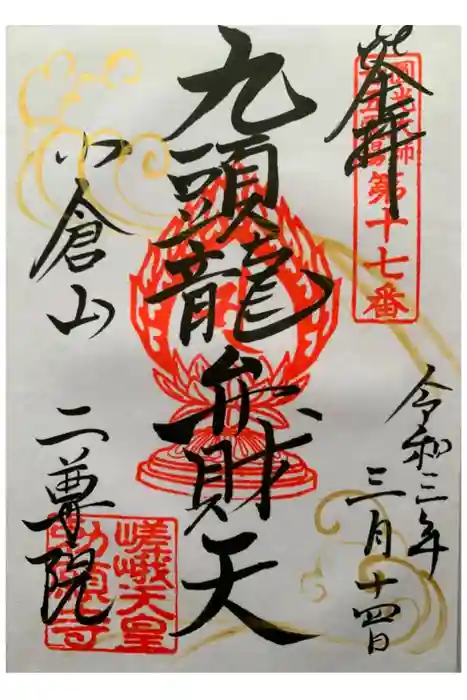 奉拝
圓光大師
第十七番
令和三年
三月十四日
九頭龍弁財天
小倉山
二尊院
嵯峨天皇
勅願寺